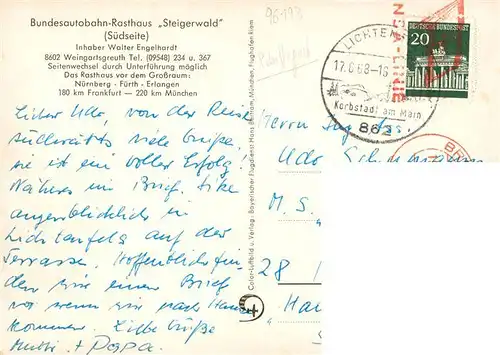 Bundesautobahn-Rasthaus „Steigerwald"
(Südseite)
Inhaber Walter Engelhardt
8602 Weingartsgreuth Tel. (09548) 234 u. 367
Seitenwechsel durch Unterführung möglich
Das Rasthaus vor dem Großraum:
Nürnberg - Fürth - Erlangen
180 km Frankfurt — 220 km München
Lieber Udo, von der Reise
südwärts viele Grüße,
sie ist ein voller Erfolg!
Näheres im Brief.
augenblicklich in
Lichtenfels auf der
Terrasse. Hoffentlich
wir einen Brief
vor wenn wir nach Hause
kommen. Liebe Grüße
Mutti + Papa.
Color-Luftbild u. Verlag: Bayerischer Flugdienst Hans Bertram, München, Flughafen-Riem
96193
LICHTENF
17.6.68-16
Korbstadt am Main
862
N-LINIE
20
DEUTSCHE BUNDESPOST
Herrn Ing.
Udo
M. S.
28